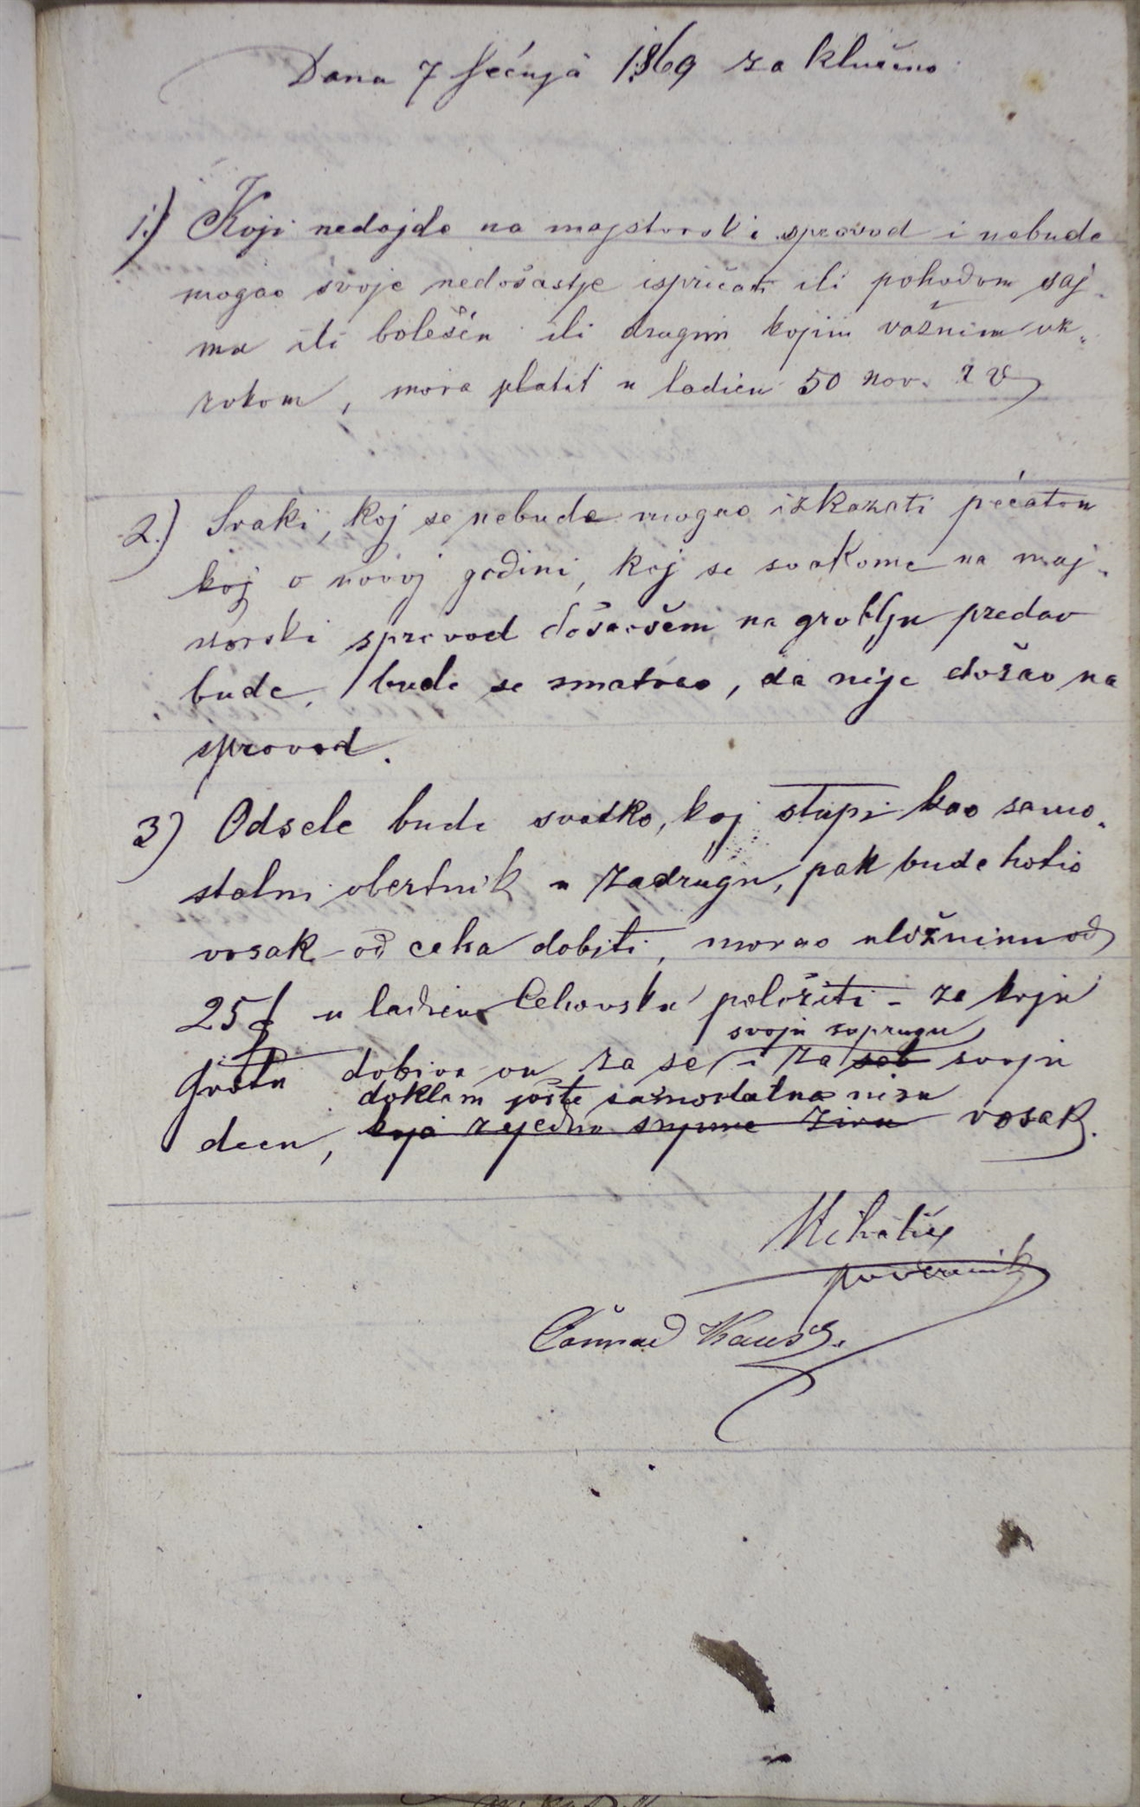 Dana 7 Sečnja 1869 zaključeno
1.) Koji nedojde na majstorski sprovod i nebude
mogao svoje nedošastje ispričati ili pohodom saj-
ma ili bolešću ili drugim kojim važnim uz-
rokom, mora platit u ladicu 50 nov.
2.) Svaki, koj se nebude mogao izkazati pečatom
koj o novoj godini, koj se svakome na maj-
storski sprovod došavšem na groblju predav
bude, bude se smatrao, da nije došao na
sprovod.
3) Odsele bude svatko, koj stupi kao samo-
stalni obertnik u Zadrugu, pak bude hotio
vosak od ceha dobiti, morao uložninu od
25 f u ladicu Cehovsku položiti - za koju
svoju suprugu
dobiva on za se i za seb svoju
doklam jošte samostalna nisu
decu, koja zajedno snjime živu vosak.
Mihalić
poverenik
Conrad Kauss.